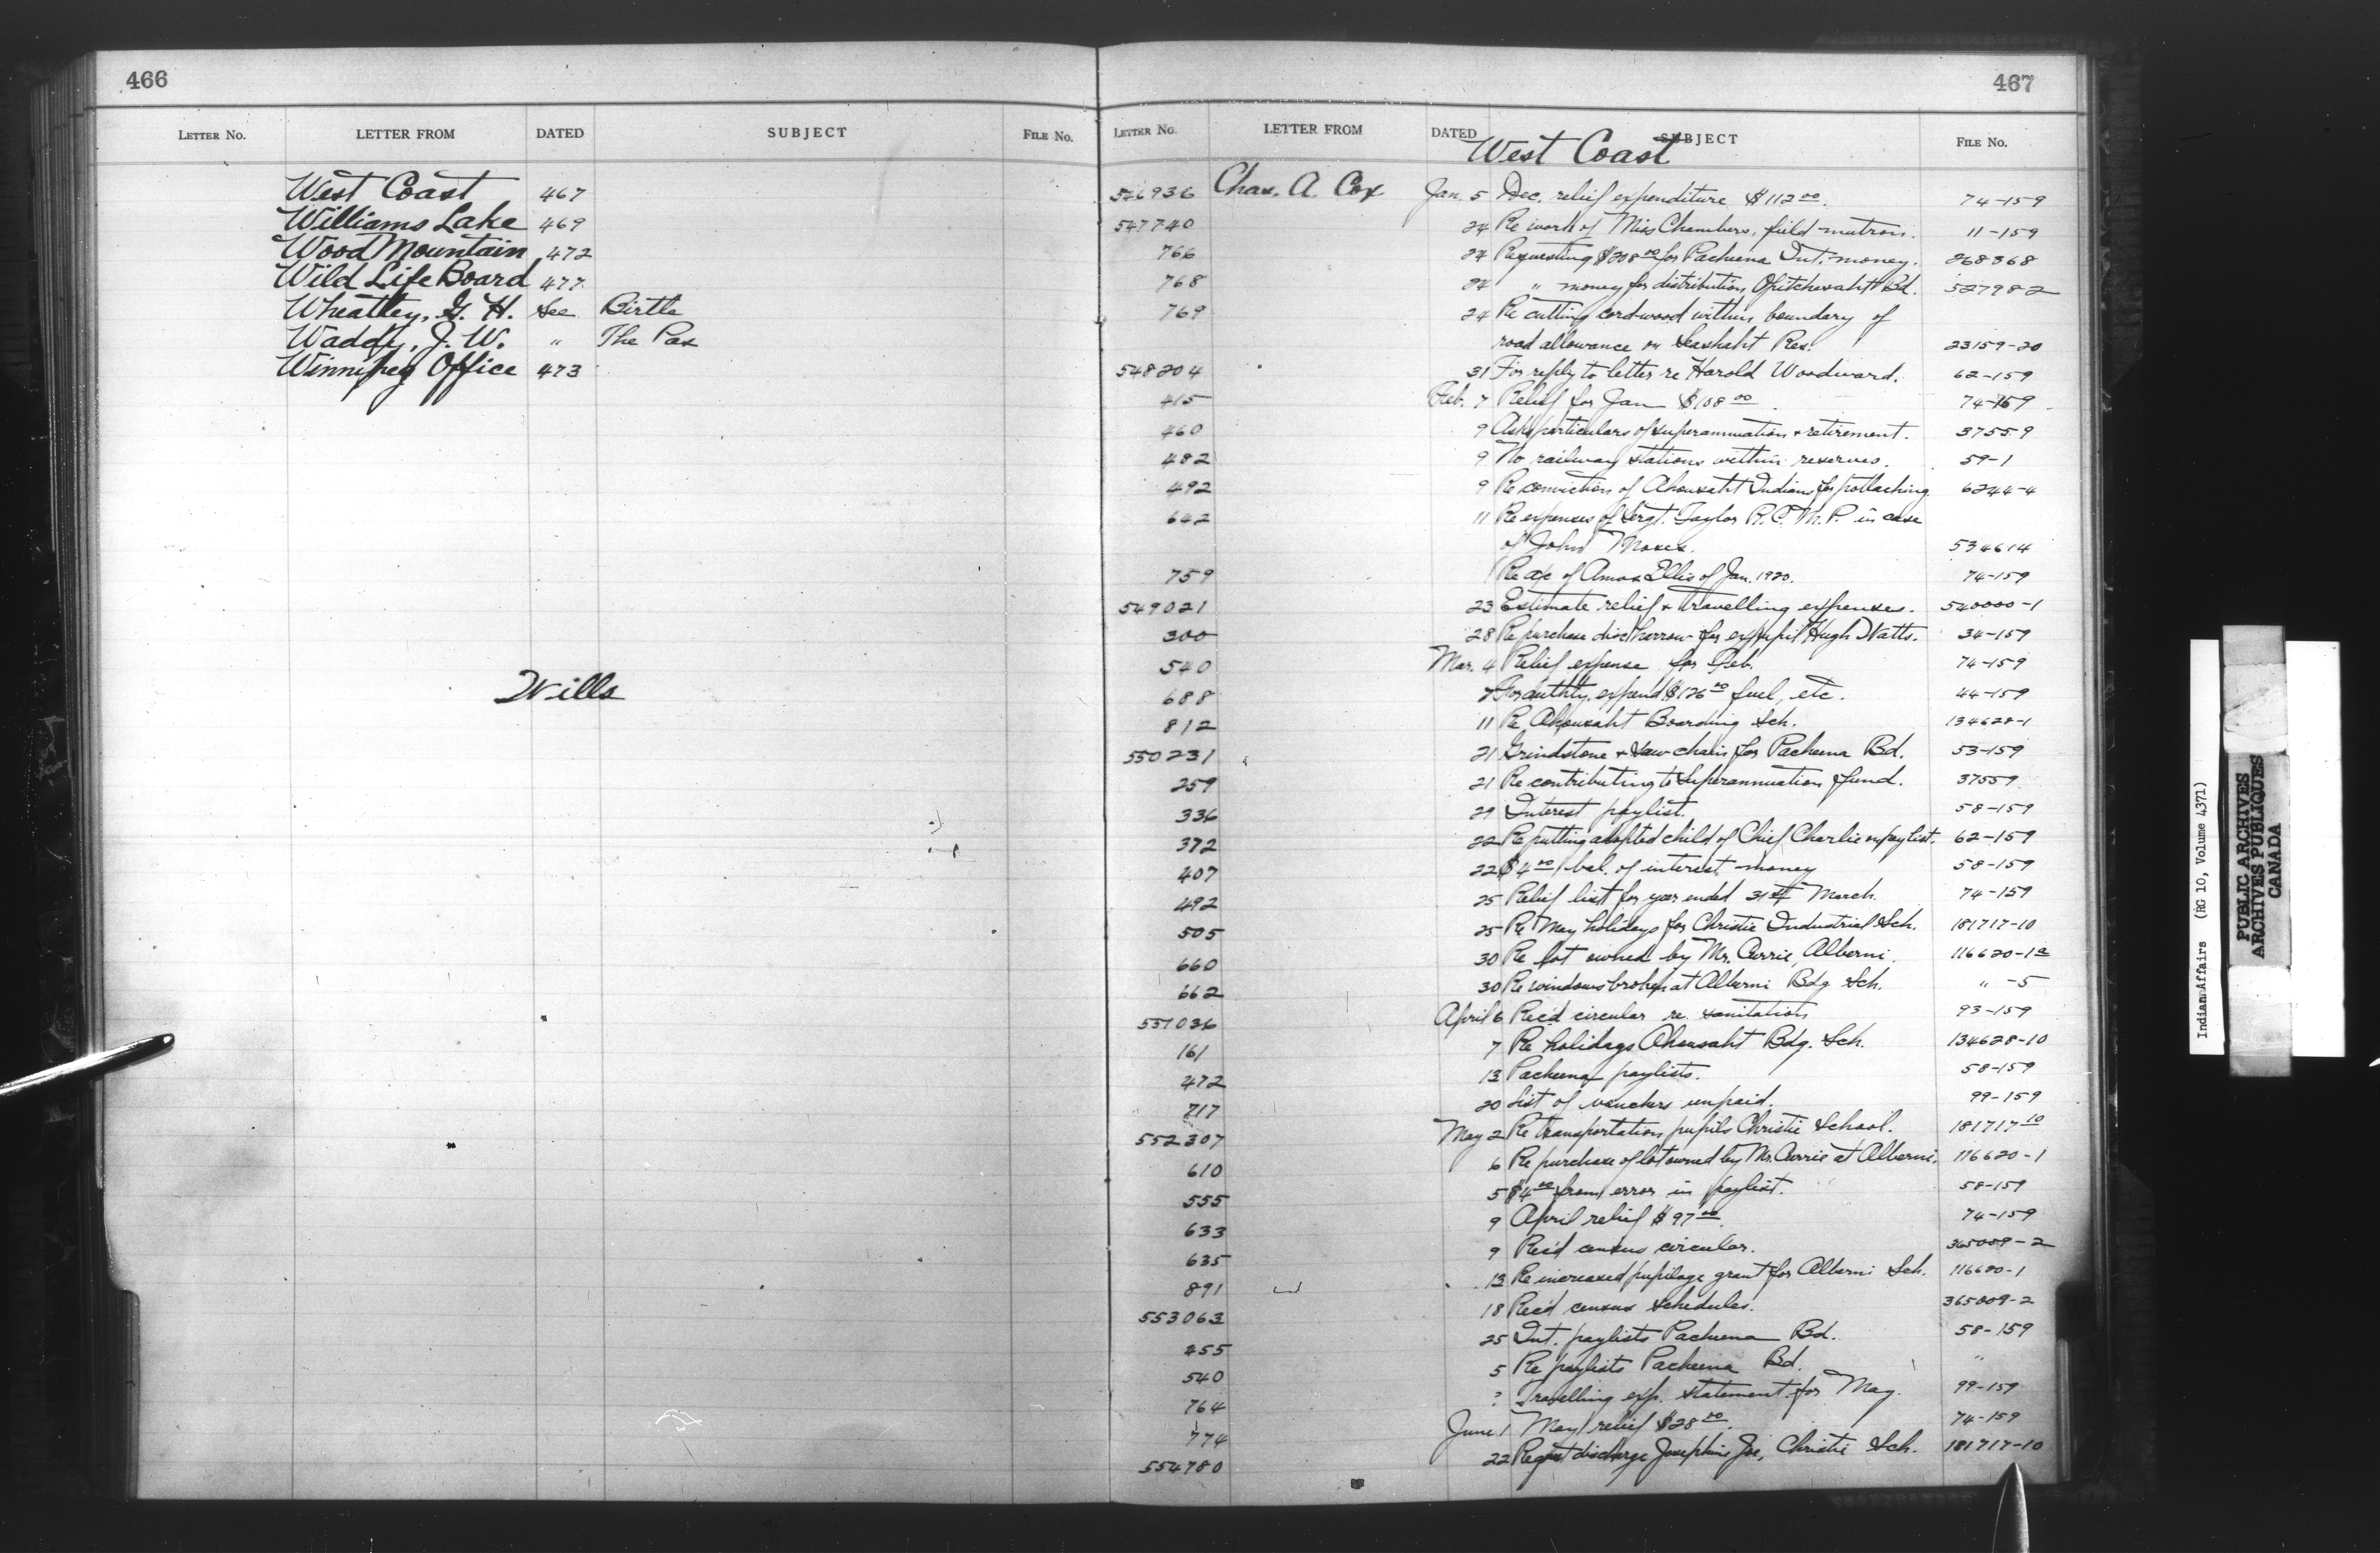 466
LETTER NO. LETTER FROM DATED SUBJECT FILE NO.
West Coast 467
Williams Lake 469
Wood Mountain 472
Wild Life Board 477
Wheatley, G. H. see Birtle
Waddy, J. W. " The Pas
Winnipeg Office 473
Wills
467
LETTER NO. LETTER FROM DATED SUBJECT FILE NO.
West Coast
546936 Chas. A. Cox Jan. 5 Dec. relief expenditure $112 00. 74-159
547740 24 Re work of Miss Chambers, field matron. 11-159
766 24 Requesting $208 00 for Pacheena Int. money. 268368
768 24 " money for distribution, Opitchesaht Bd. 527982
769 24 Re cutting cordwood within boundary of
road allowance on Seashaht Res. 23159-20
548204 31 For reply to letter re Harold Woodward. 62-159
415 Feb. 7 Relief for Jan $108 00. 74-159
460 9 Asks particulars of superannuation & retirement. 37559
482 9 No railway stations within reserves. 59-1
492 9 Re conviction of Ahousaht Indians for potlaching 6244-4
642 11 Re expenses of Sergt. Taylor R.C.M.P. in case
of John Moses. 534614
759 Re a/c of Amos Ellis of Jan. 1920. 74-159
549021 23 Estimate relief & travelling expenses. 540000-1
300 28 Re purchase disc harrow for ex pupil Hugh Watts. 34-159
540 Mar. 4 Relief expense for Feb. 74-159
688 7 For authty. expend. $126 00 fuel, etc. 44-159
812 11 Re Ahousaht Boarding Sch. 134628-1
550231 21 Grindstone & saw chain for Pacheena Bd. 53-159
259 21 Re contributing to Superannuation fund. 37559
336 21 Interest paylist. 58-159
372 22 Re putting adopted child of Chief Charlie on paylist. 62-159
407 22 $4 00 bal. of interest money 58-159
492 25 Relief list for year ended 31st March. 74-159
505 25 Re May holidays for Christie Industrial Sch. 181717-10
660 30 Re lot owned by Mr. Currie, Alberni. 116620-1a
662 30 Re windows broken at Alberni Bdg Sch. " -5
551036 April 6 Rec'd circular re. sanitation 93-159
161 7 Re holidays Ahousaht Bdg. Sch. 134628-10
472 13 Pacheena paylists. 58-159
717 20 List of vouchers unpaid. 99-159
552307 May 2 Re transportation pupils Christie School. 181717 10
610 6 Re purchase of lot owned by Mr. Currie at Alberni. 116620-1
555 5 $4 00 from error in paylist. 58-159
633 9 April relief $97 00. 74-159
635 9 Rec'd census circular. 365009-2
891 13 Re increased pupilage grant for Alberni Sch. 116620-1
553063 18 Rec'd census schedules. 365009-2
455 25 Int. paylists Pacheena Bd. 58-159
540 5 Re paylists Pacheena Bd. "
764 ? Travelling exp. statement for May. 99-159
774 June 1 May relief $28 00. 74-159
554780 22 Reqst discharge Josephine Joe, Christie Sch. 181717-10
Indian Affairs (RG 10, Volume 4371)
PUBLIC ARCHIVES
ARCHIVES PUBLIQUES
CANADA